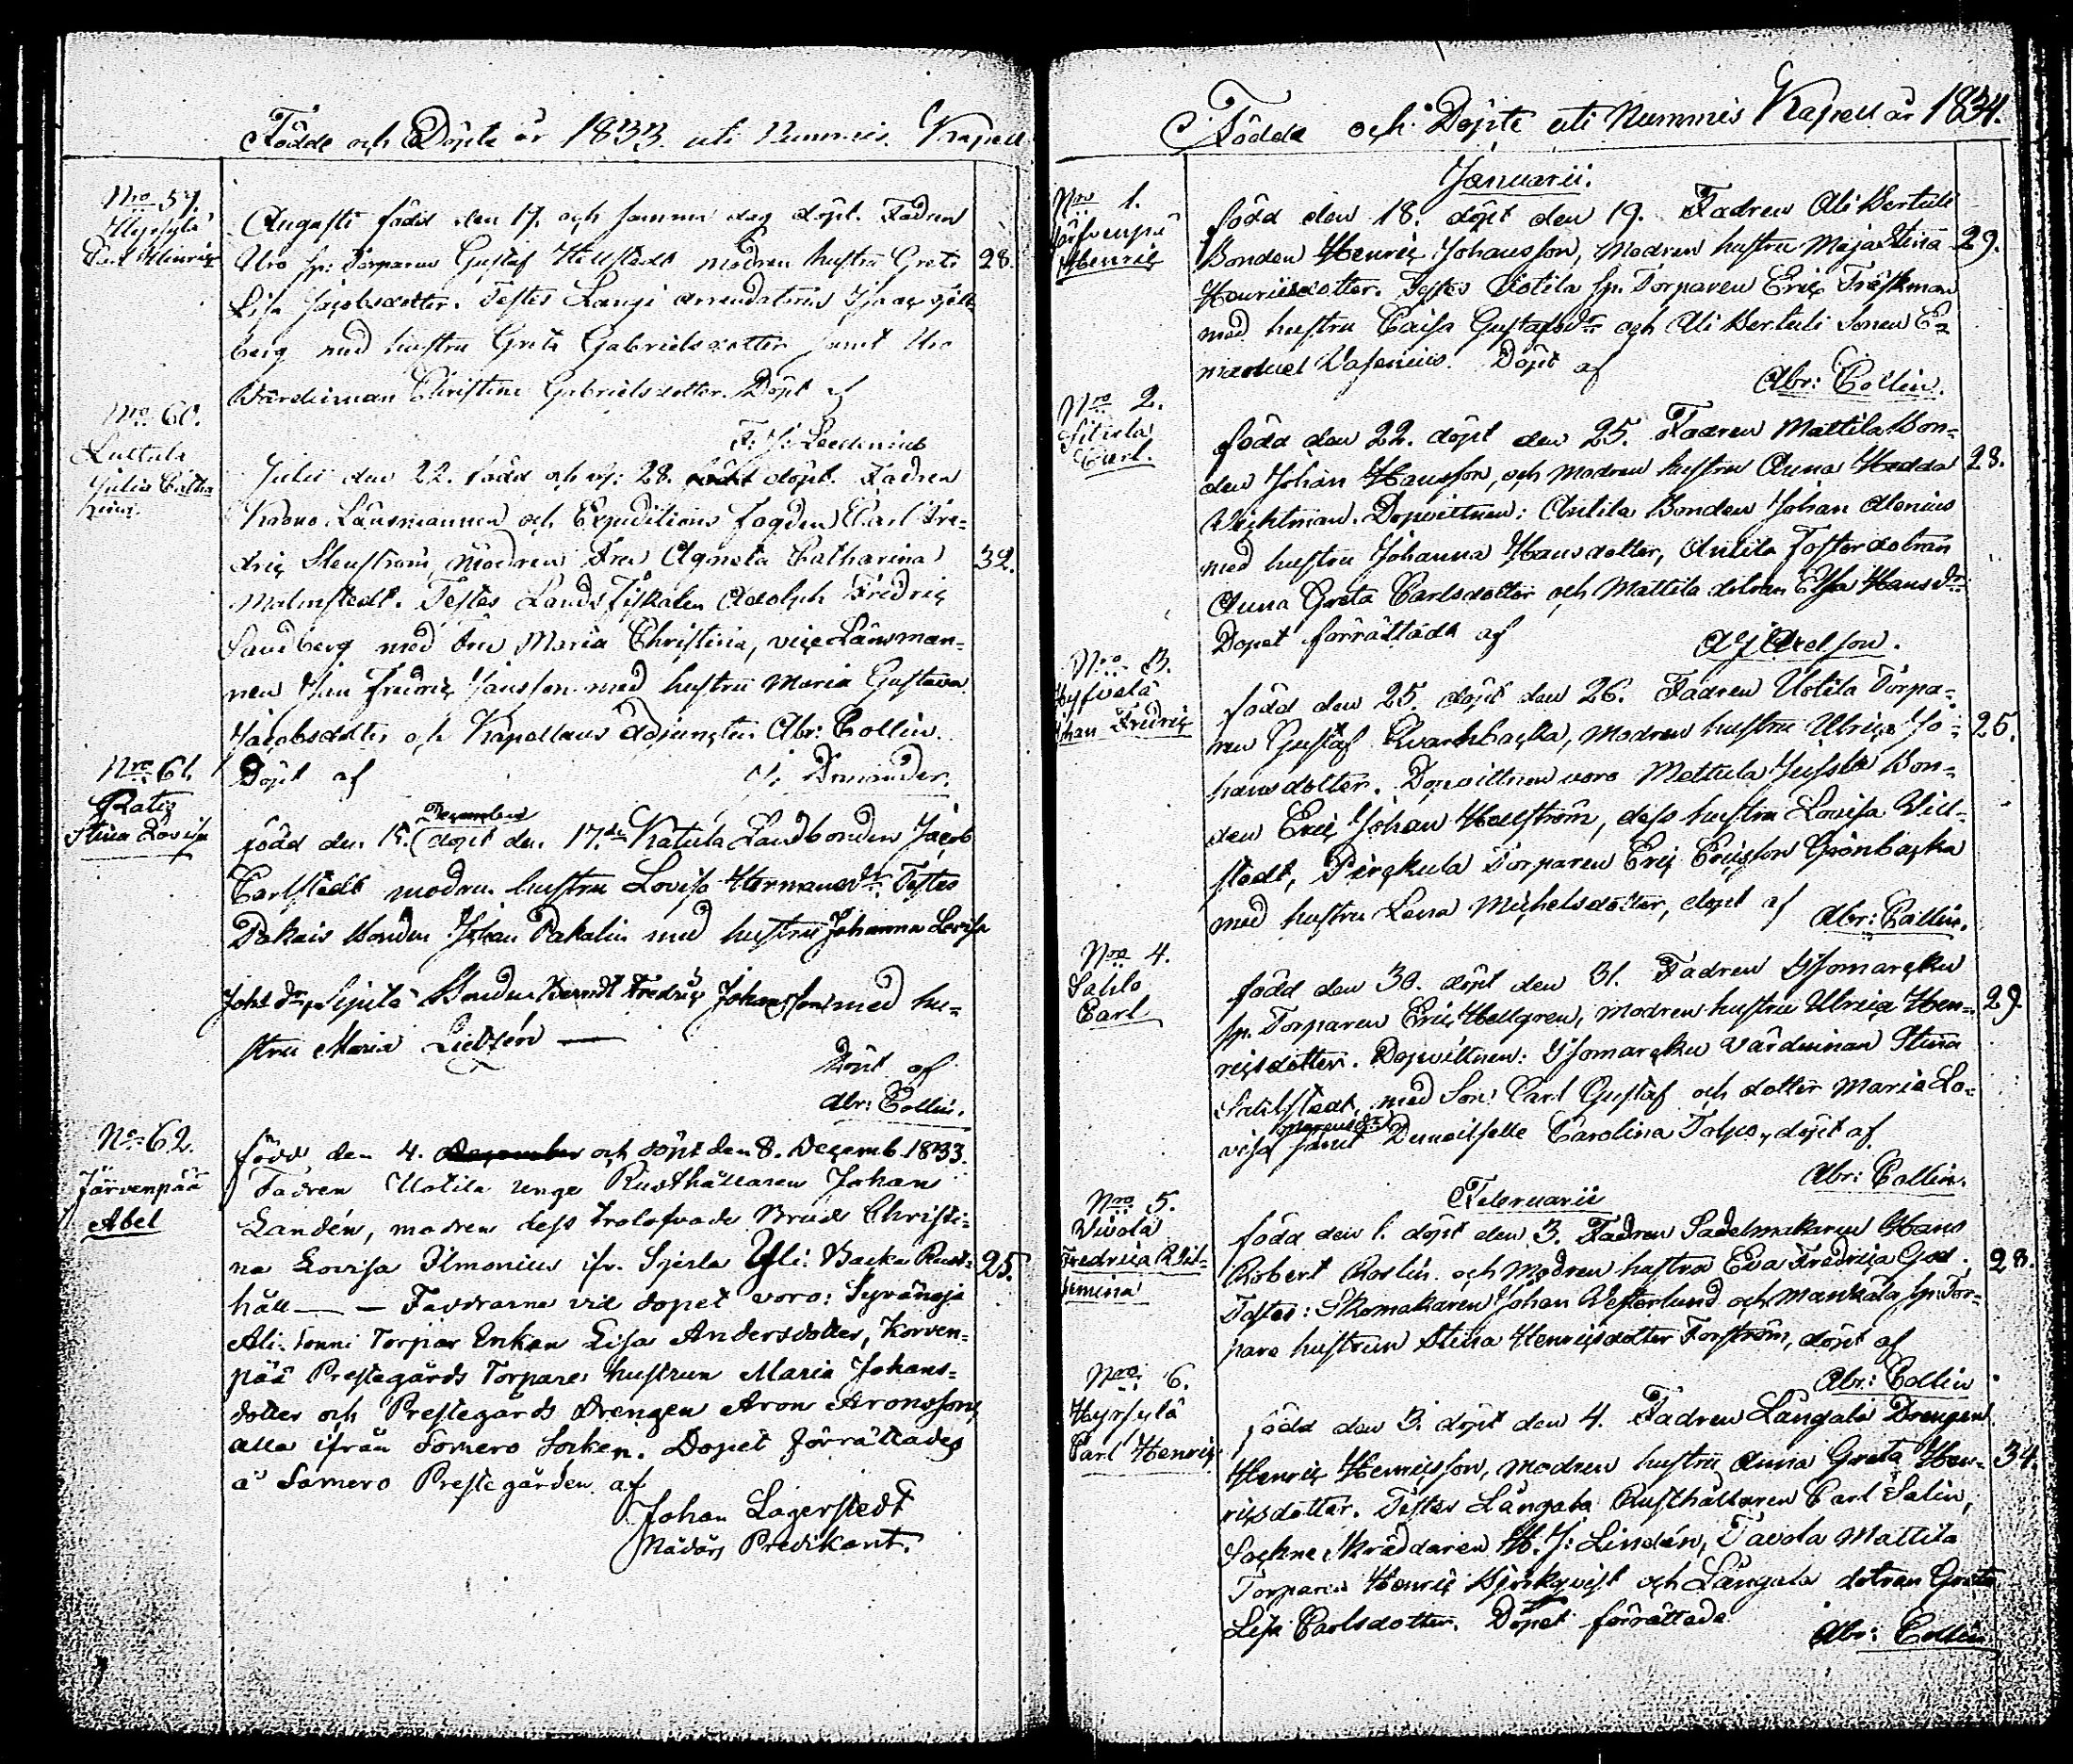 Födde och Döpte år 1833 uti Nummis Kapell
Nro 59.
Hyrsylä
Carl Henric
Augusti född den 17. och samma dag döpt. Fadren
Uro sp: Torparen Gustaf Hellstedt modren hustru Greta
28.
Lisa Jacobsdotter. Testes Langi arrendatorn Isaac Sjöl-
berg med hustru Greta Gabrielsdotter samt Uro
Värdinnan Christina Gabrielsdotter. Döpt af
F: J: Leedenius
Nro 60.
Luttula
Julia Catha
rina.
Julii den 22. född och dp: 28. döpt. Fadren
Krono Länsmannen och Expeditions Fogden Carl Fre-
dric Stenström, Modren Fru Agneta Catharina
32.
Malmstedt. Testes Lands Fiskalen Adolph Fredric
Sandberg med Fru Maria Christina, vice Länsman-
nen Jan Fredric Jansson med hustru Maria Gustava
Jacobsdotter och Kapellans Adjuncten Abr: Collin.
Döpt af
Dmander.
Nro 61.
Ratia
Stina Lovisa
December
född den 15. döpt den 17.de Katula Landbonden Jacob
Carlstedt modren hustru Lovisa Hermansdr. Testes
Pakais Bonden Johan Pakalin med hustru Johanna Lovisa
Johs dr, Sejtilä Bonden Berndt Fredric Johansson med hu-
stru Maria Lietzén —
Döpt af
Abr: Collin.
No 62.
Järvenpää
Abel
född den 4. December och döpt den 8. Decemb. 1833.
Fadren Uotila unge Rusthållaren Johan
Landén, modren dess trolofvade Brud Christi-
na Lovisa Ilmonius ifr. Sjerla Yli: Backa Rust-
25.
håll — — Faddrarne vid dopet voro: Syvänoja
Ali-Sonni Torpar Enkan Lisa Andersdotter, Korven-
pää Prestegårds Torpares hustrun Maria Johans-
dotter och Prestegårds Drengen Aron Aronsson,
alla ifrån Somero Socken. Dopet förrättades
å Somero Prestegården af
Johan Lagerstedt
Nådårs Predikant.
Födda och Döpte uti Nummis Kapell år 1834.
Januarii.
Nro 1.
Järfvenpä
Henric
född den 18. döpt den 19. Fadren Ali Bertuli
Bonden Henric Johansson, Modren hustru Maja Stina
29.
Henricsdotter. Testes Uotila sp. Torparen Eric Träskman
med hustru Caisa Gustafsdr och Ali Bertuli Sonen E-
manuel Vasenius. Döpt af
Abr: Collin.
Nro 2.
Sitisla
Carl.
född den 22. döpt den 25. Fadren Mattila Bon-
den Johan Hansson, och Modren hustru Anna Hedda
28.
Wichtman. Dopvittnen: Antila Bonden Johan Alenius
med hustru Johanna Hansdotter, Antila Fosterdotran
Anna Greta Carlsdotter och Mattila dotran Elsa Hansdr
Dopet förrättadt af
A J Axelson.
Nro 3.
Hyfvelä
Johan Fredric
född den 25. döpt den 26. Fadren Uotila Torpa-
ren Gustaf Qvarnbacka, Modren hustru Ulrica Jo-
25.
hansdotter. Dopvittnen voro Mettula Jussila Bon-
den Eric Johan Hellström, dess hustru Lovisa Vid-
stedt, Pirckula Torparen Eric Ericsson Grönbacka
med hustru Lena Michelsdotter, döpt af
Abr: Collin.
Nro 4.
Sahlo
Carl
född den 30. döpt den 31. Fadren Isomarcku
sp. Torparen Eric Hellgren, Modren hustru Ulrica Hen-
29.
ricsdotter. Dopvittnen: Isomarcku Värdinnan Stina
Sahlstedt, med Son Carl Gustaf och dotter Maria Lo-
visa samt Demoiselle Carolina Tolpo, döpt af
Abr: Collin.
Februarii
Nro 5.
Vivola
Fredrica Wil-
hemina
född den 1. döpt den 3. Fadren Sadelmakaren Hans
Robert Roslin och Modren hustru Eva Fredrica God.
28.
Testes: Skomakaren Johan Vesterlund och Mankala sp. Tor-
pare hustrun Stina Henricsdotter Forström, döpt af
Abr: Collin
Nro 6.
Hyrsylä
Carl Henric
född den 3. döpt den 4. Fadren Långala Drengen
Henric Henricsson, Modren hustru Anna Greta Hen-
34.
ricsdotter. Testes Långala Rusthållaren Carl Salin,
Sockne Skräddaren H. J: Lindén, Tavola Mattila
Torparen Henric Björkqvist och Långala dotran Greta
Lisa Carlsdotter. Dopet förrättade
Abr: Collin